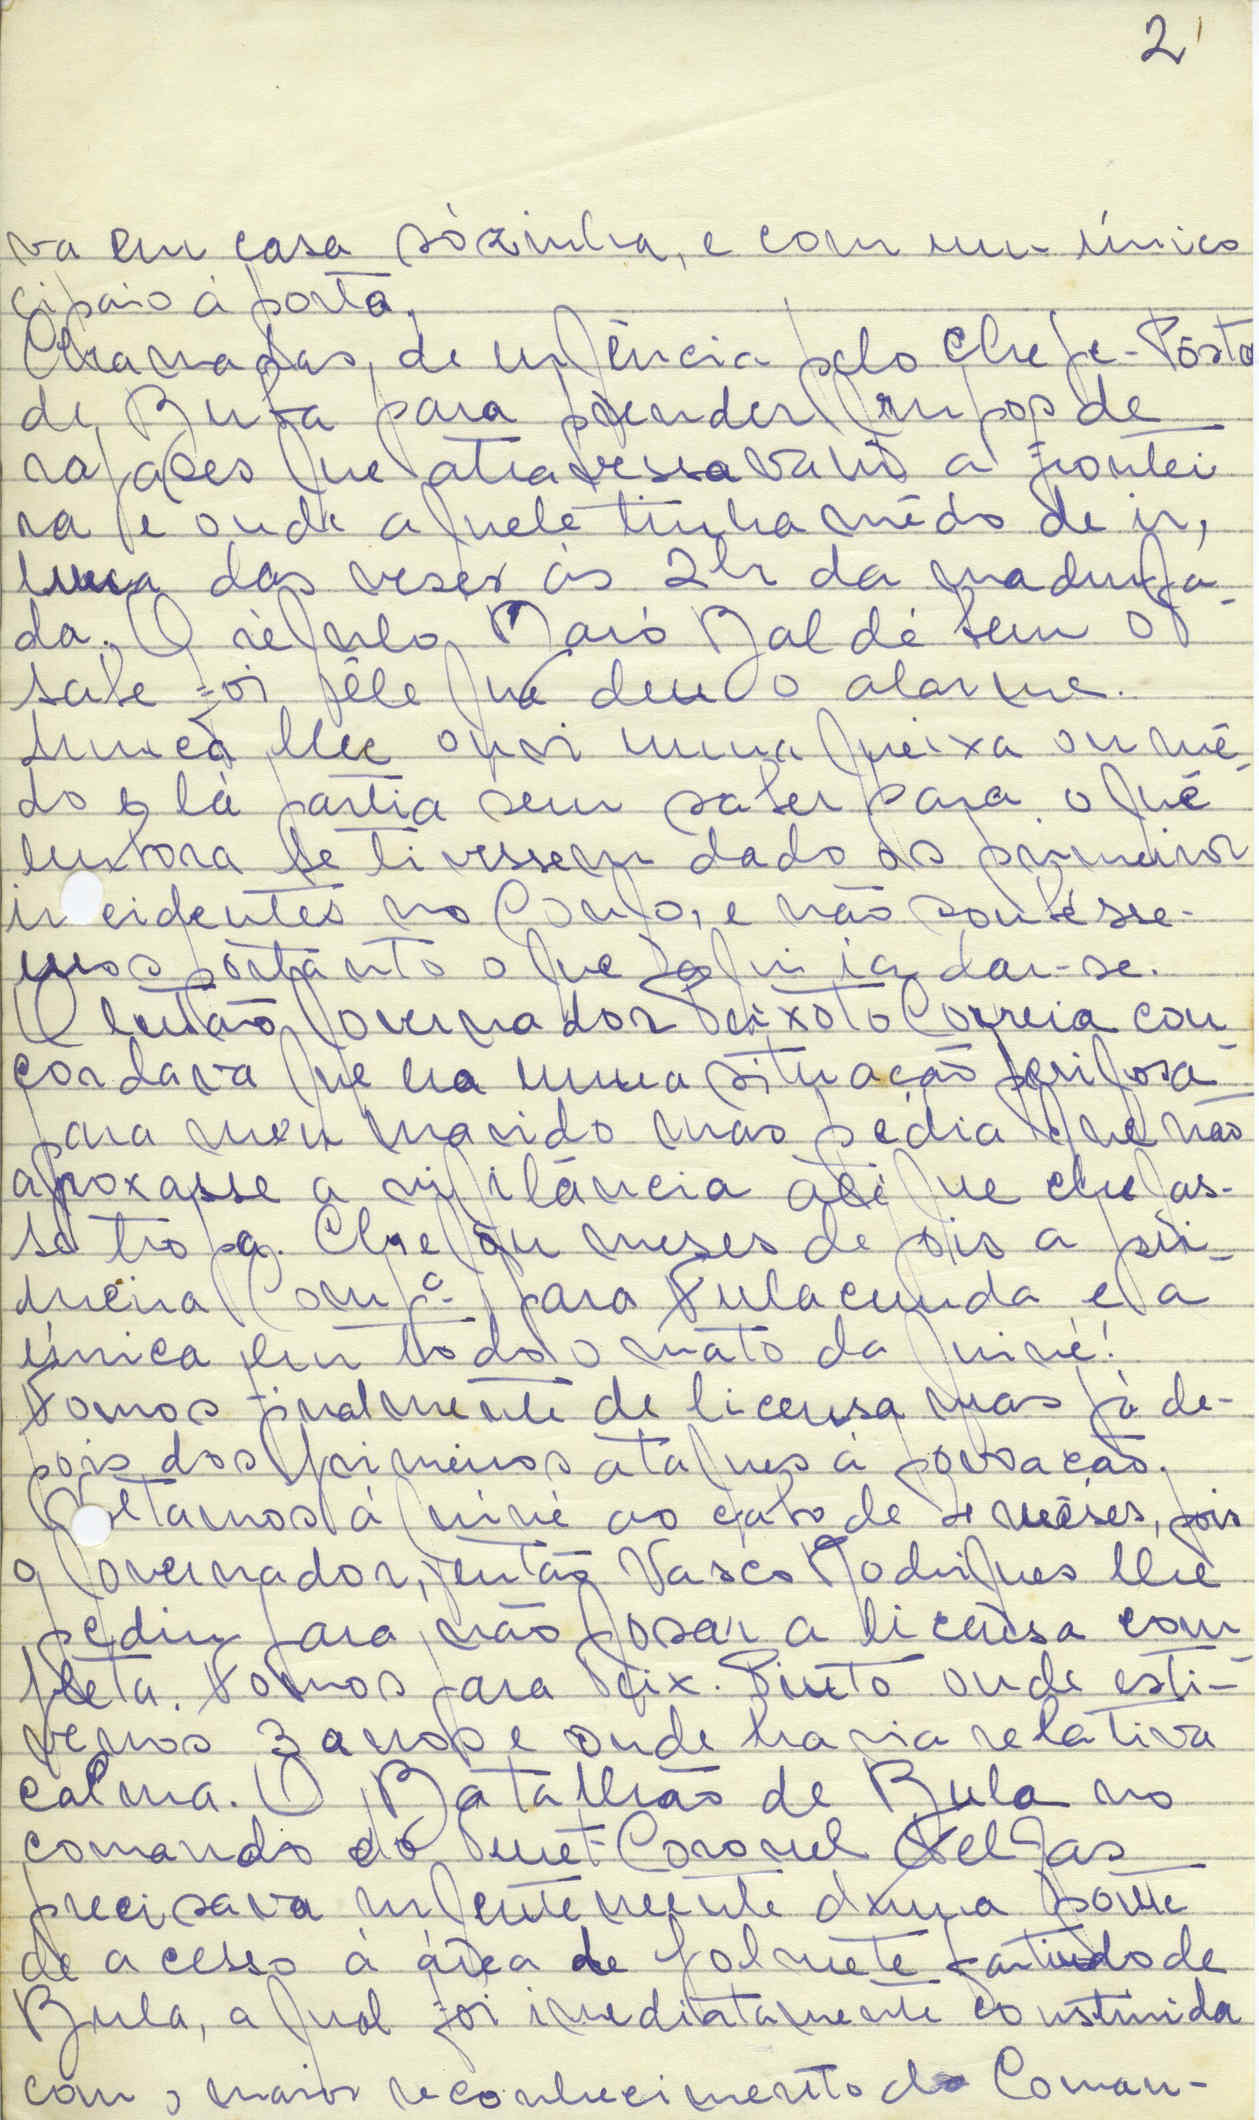 2
va em casa sòzinha, e com um único
cipaio à porta.
Chamadas de urgência pelo Chefe-Pôsto
de Buba para prender grupos de
rapazes que atravessavam a frontei
ra e onde aquele tinha mêdo de ir,
uma das vezes às 2h da madruga-
da. O régulo Baldé bem o
sabe foi êle que deu o alarme.
Nunca lhe ouvi uma queixa ou mê-
do e lá partia sem saber para o quê
embora se tivessem dado os primeiros
incidentes no Congo, e não soubésse-
mos portanto o que ia dar-se.
O então Governador Peixoto Correia con
cordava que era uma situação perigosa
para meu marido mas pedia que não
afroxasse a vigilância até que chegas-
se tropa. Chegou meses depois a pri-
meira Comp.ª para Fulacunda e a
única em todo o mato da Guiné!
Fomos finalmente de licensa mas já de-
pois dos primeiros ataques à povoação.
Voltamos à Guiné ao cabo de 4 mêses, pois
o Governador, então Vasco Rodrigues lhe
pediu para não gosar a licensa com
pleta. Fomos para Teix. Pinto onde esti-
vemos 3 anos e onde havia relativa
calma. O Batalhão de Bula no
comando do Tenet-Coronel
precisava urgentemente d'uma ponte
de acesso à área de Jolmete partindo de
Bula, a qual foi imediatamente construida
com o maior reconhecimento do Coman-